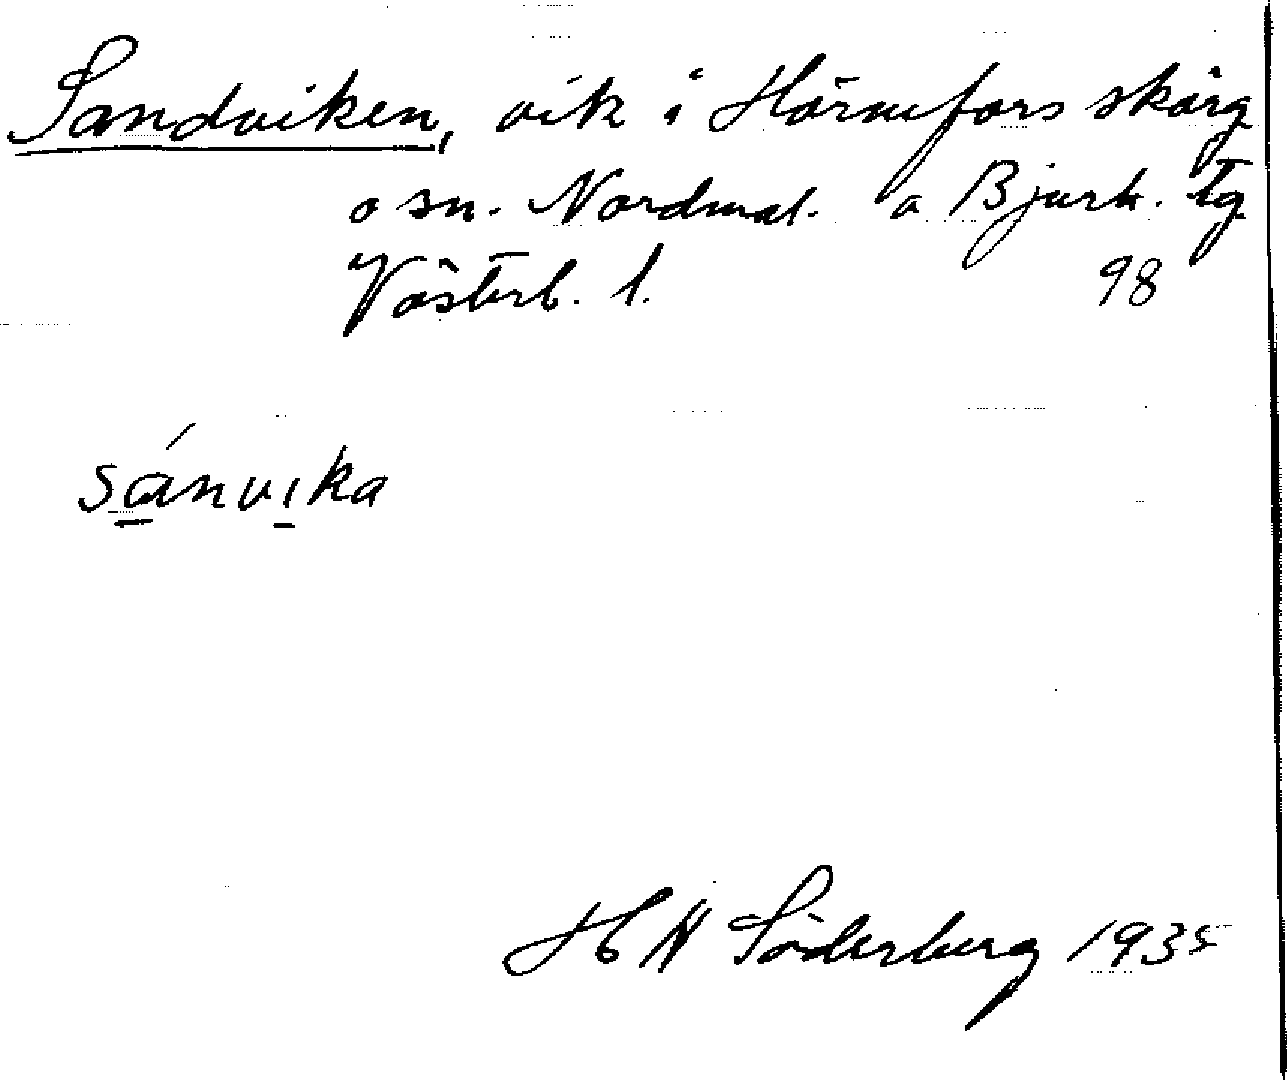 Sandviken, vik i Hörnefors skärg
o sn. Nordmal. a Bjurh. Tg
Västerb. l. 98
sánvika
H N Söderberg 1935